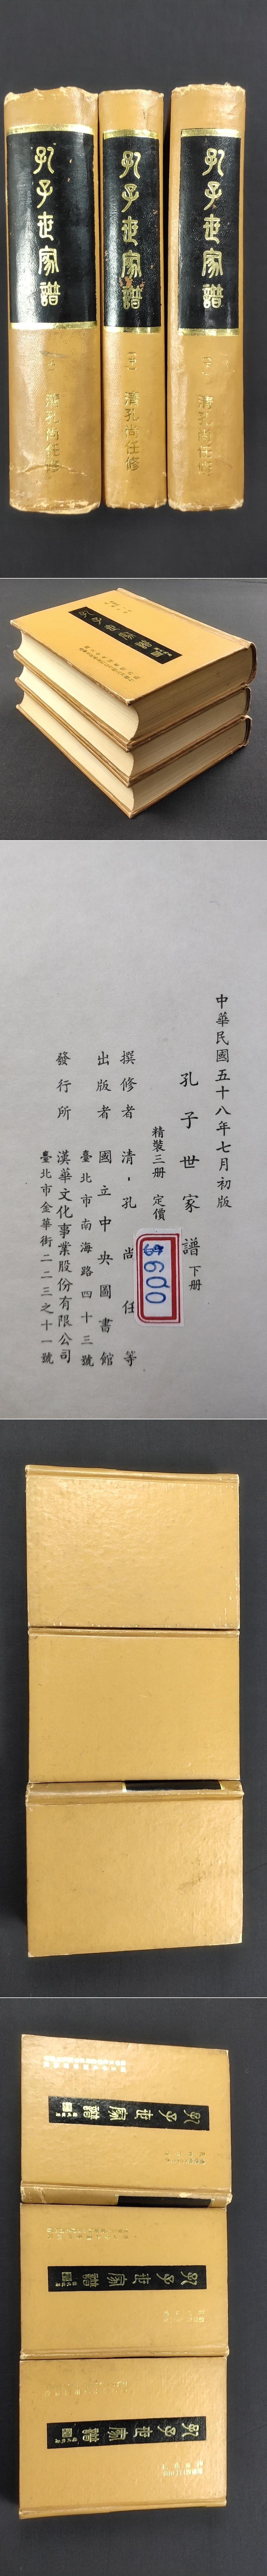 孔子世家譜
上
清孔尚任修
孔子世家譜
中
清孔尚任修
孔子世家譜
下
清孔尚任修
中華民國五十八年七月初版
孔子世家譜 下册
精裝三册 定價
$600
撰修者 清·孔尚任等
出版者 國立中央圖書館
臺北市南海路四十三號
發行所 漢華文化事業股份有限公司
臺北市金華街二二三之十一號
孔子世家譜
孔子世家譜
孔子世家譜